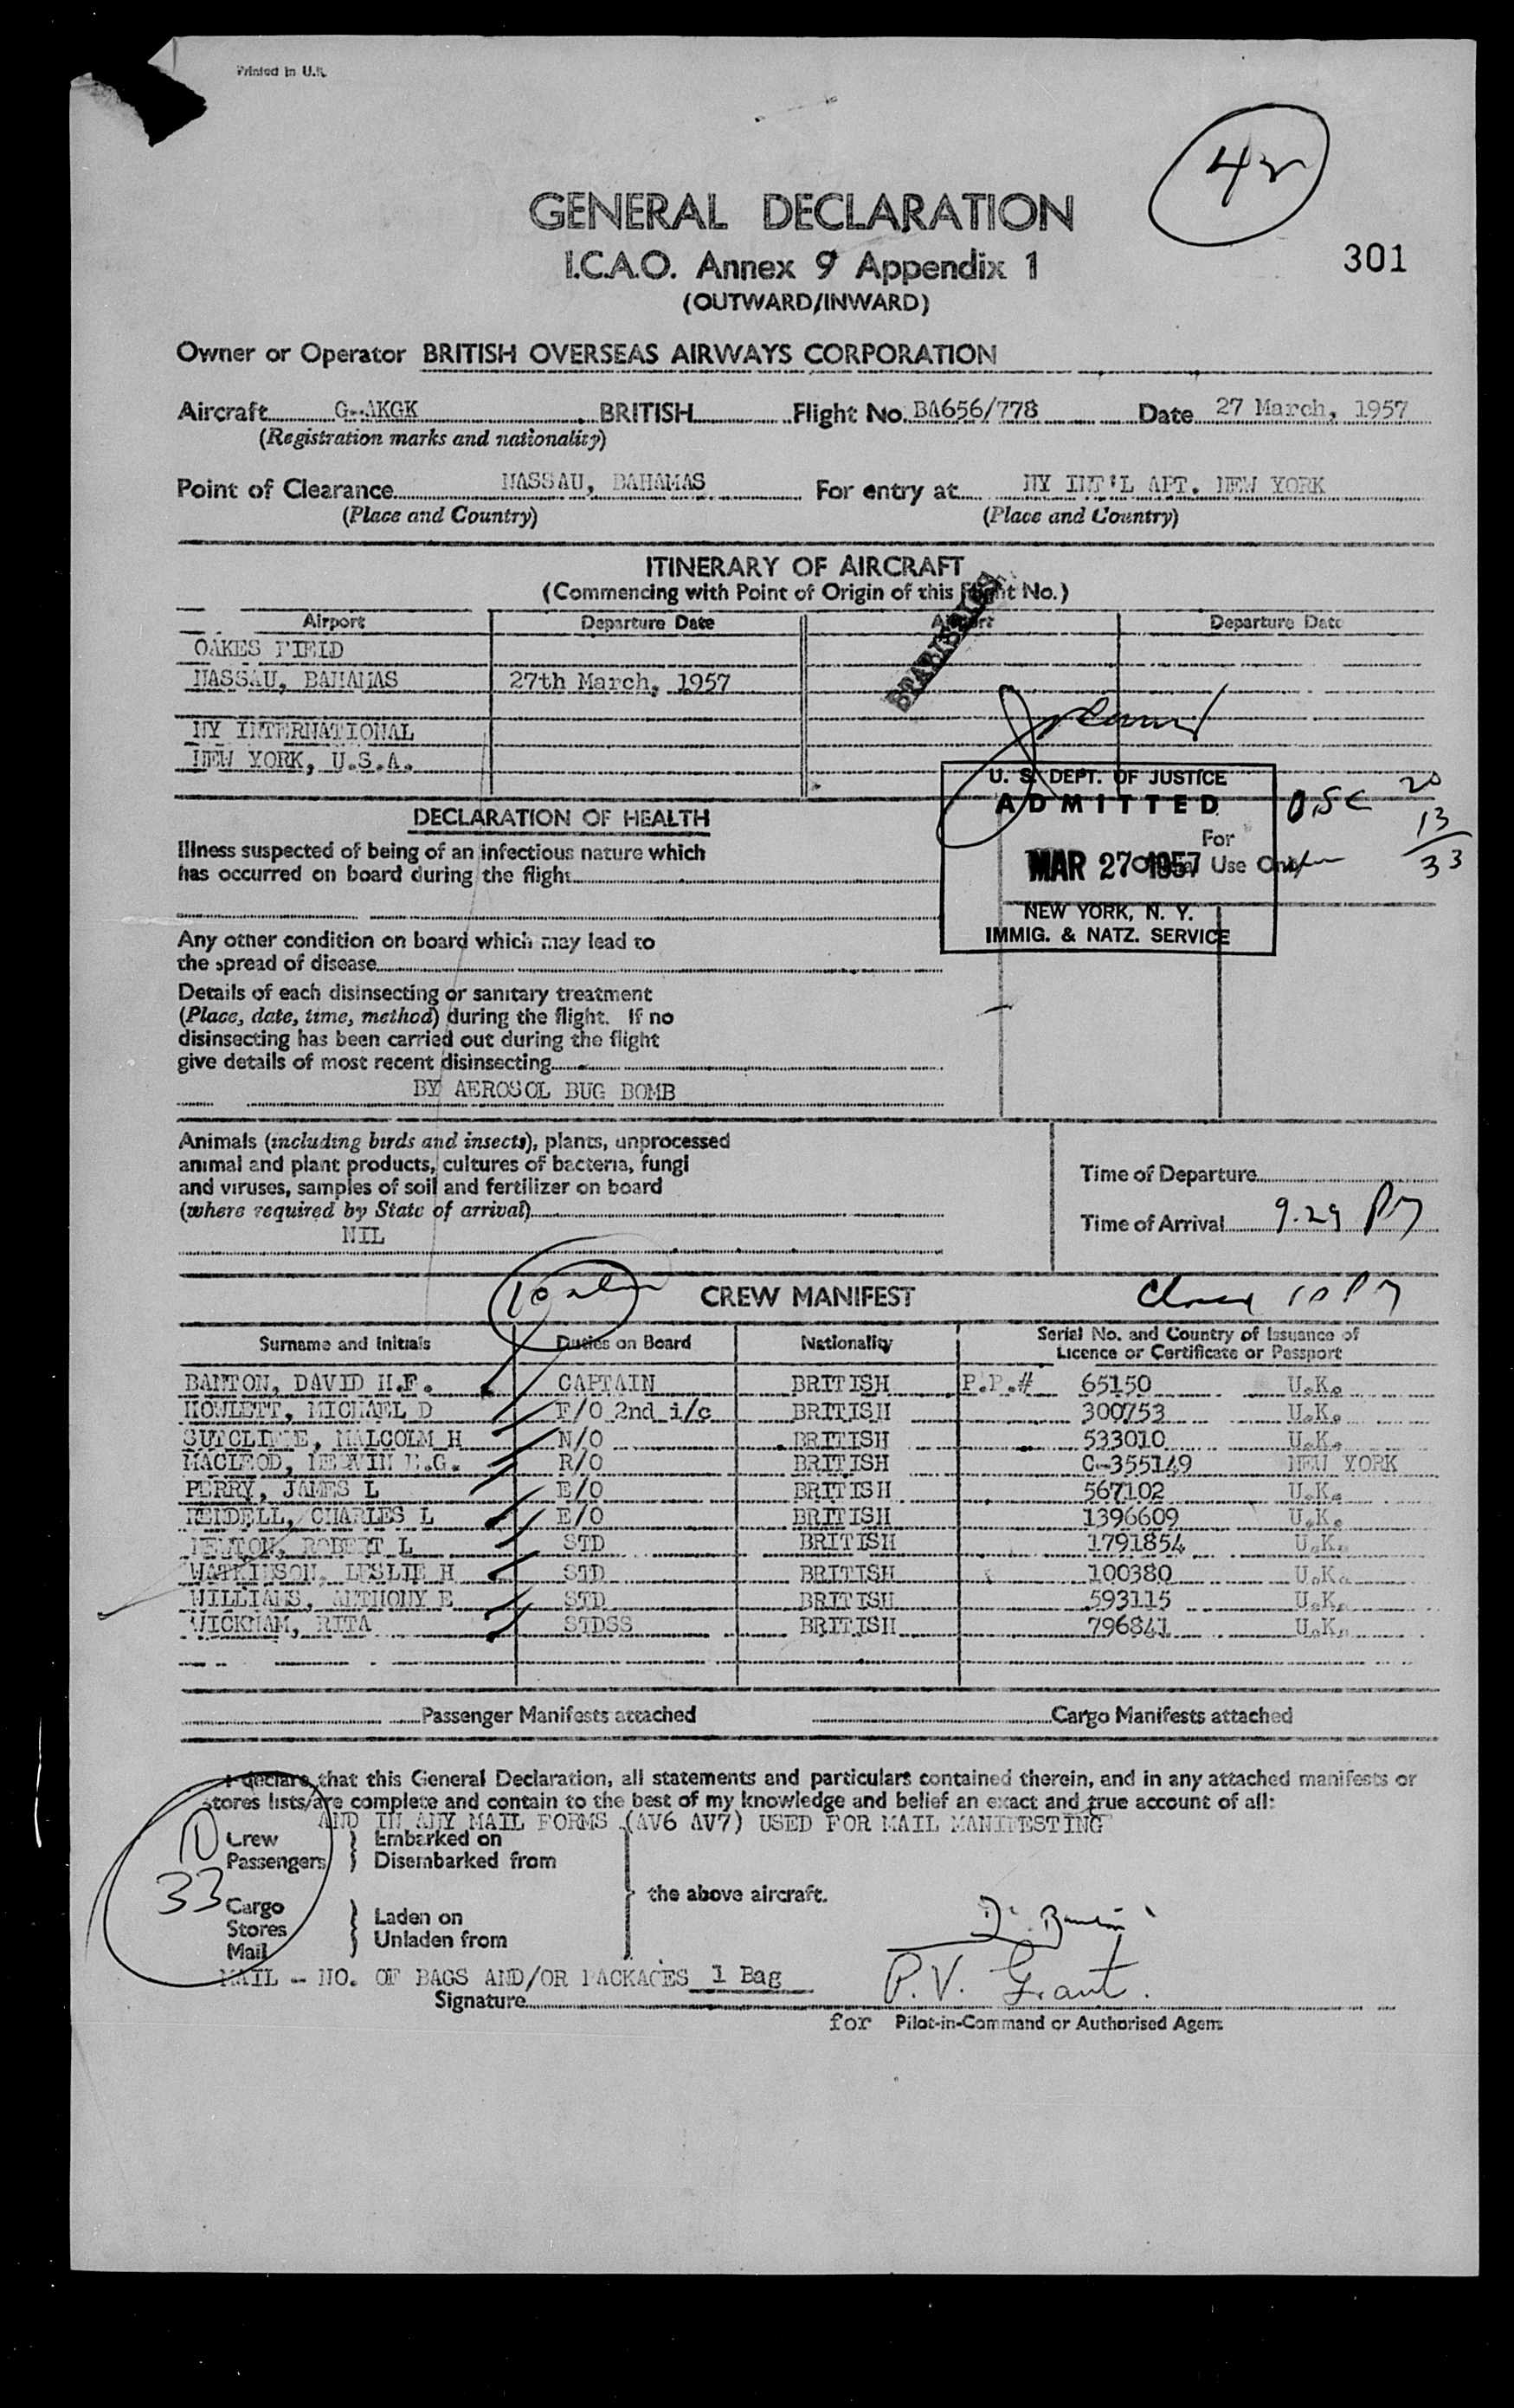 Printed in U.K.
42
GENERAL DECLARATION
301
I.C.A.O. Annex 9 Appendix 1
(OUTWARD/INWARD)
Owner or Operator BRITISH OVERSEAS AIRWAYS CORPORATION
Aircraft G-AKGK BRITISH Flight No. BA656/778 Date 27 March, 1957
(Registration marks and nationality)
Point of Clearance NASSAU, BAHAMAS For entry at NY INT'L APT. NEW YORK
(Place and Country) (Place and Country)
ITINERARY OF AIRCRAFT
(Commencing with Point of Origin of this Flight No.)
Airport Departure Date Airport Departure Date
OAKES FIELD
NASSAU, BAHAMAS 27th March, 1957
NY INTERNATIONAL
NEW YORK, U.S.A.
U. S. DEPT. OF JUSTICE
ADMITTED
MAR 27 1957
NEW YORK, N. Y.
IMMIG. & NATZ. SERVICE
For
Official Use Only
20
13
33
DECLARATION OF HEALTH
Illness suspected of being of an infectious nature which
has occurred on board during the flight
Any other condition on board which may lead to
the spread of disease
Details of each disinsecting or sanitary treatment
(Place, date, time, method) during the flight. If no
disinsecting has been carried out during the flight
give details of most recent disinsecting
BY AEROSOL BUG BOMB
Animals (including birds and insects), plants, unprocessed
animal and plant products, cultures of bacteria, fungi
and viruses, samples of soil and fertilizer on board
(where required by State of arrival)
NIL
Time of Departure
Time of Arrival 9.29 PM
10
CREW MANIFEST
10 PM
Surname and Initials Duties on Board Nationality Serial No. and Country of Issuance of
Licence or Certificate or Passport
BANTON, DAVID H.F. CAPTAIN BRITISH P.P.# 65150 U.K.
HOWLETT, MICHAEL D F/O 2nd i/c BRITISH 300753 U.K.
SUTCLIFFE, MALCOLM H N/O BRITISH 533010 U.K.
MACLEOD, R/O BRITISH C-355149 NEW YORK
PERRY, JAMES L E/O BRITISH 567102 U.K.
RENDELL, CHARLES L E/O BRITISH 1396609 U.K.
NEWTON, ROBERT L STD BRITISH 1791854 U.K.
WATKINSON, LESLIE H STD BRITISH 100380 U.K.
WILLIAMS, ANTHONY E STD BRITISH 593115 U.K.
WICKHAM, RITA STDSS BRITISH 796841 U.K.
Passenger Manifests attached Cargo Manifests attached
I declare that this General Declaration, all statements and particulars contained therein, and in any attached manifests or
stores lists/are complete and contain to the best of my knowledge and belief an exact and true account of all:
AND IN ANY MAIL FORMS (AV6 AV7) USED FOR MAIL MANIFESTING
10 Crew Embarked on
Passengers Disembarked from
33
the above aircraft.
Cargo
Stores Laden on
Mail Unladen from
D. Banton
MAIL - NO. OF BAGS AND/OR PACKAGES 1 Bag
P.V. Grant.
Signature
for Pilot-in-Command or Authorised Agent